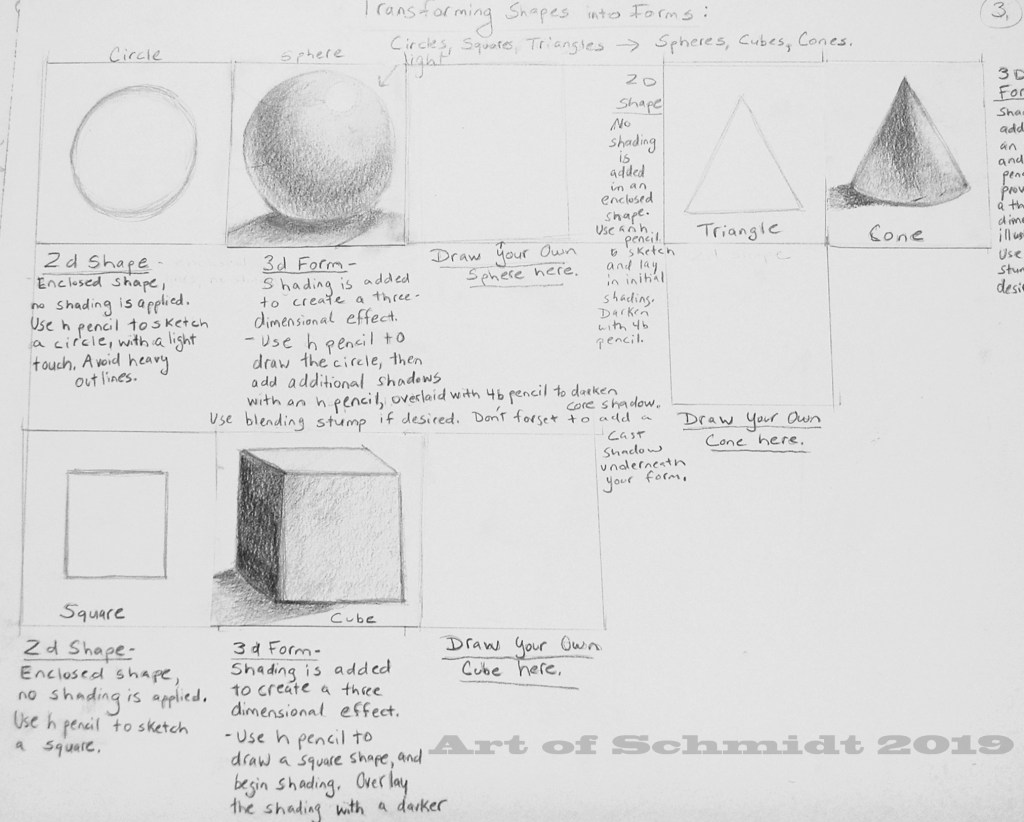 Transforming Shapes into Forms:
3.
Circles, Squares, Triangles → Spheres, Cubes, Cones.
Circle
Sphere
light
2d Shape -
Enclosed shape,
no shading is applied.
Use h pencil to sketch
a circle, with a light
touch. Avoid heavy
outlines.
3d Form -
Shading is added
to create a three-
dimensional effect.
- Use h pencil to
draw the circle, then
add additional shadows
with an h pencil, overlaid with 4b pencil to darken
core shadow.
Use blending stump if desired. Don't forget to add a
cast
shadow
underneath
your form.
Draw Your Own
Sphere here.
2D
Shape
No
shading
is
added
in an
enclosed
shape.
Use an h
pencil
to sketch
and lay
in initial
shading.
Darken
with 4b
pencil.
Triangle
Cone
3D
For
Sha
add
an
and
pen
prov
a th
dime
illu
Use
stum
desi
Draw Your Own
Cone here.
Square
Cube
2d Shape -
Enclosed shape,
no shading is applied.
Use h pencil to sketch
a square.
3d Form -
Shading is added
to create a three
dimensional effect.
- Use h pencil to
draw a square shape, and
begin shading. Overlay
the shading with a darker
Draw Your Own
Cube here.
Art of Schmidt 2019